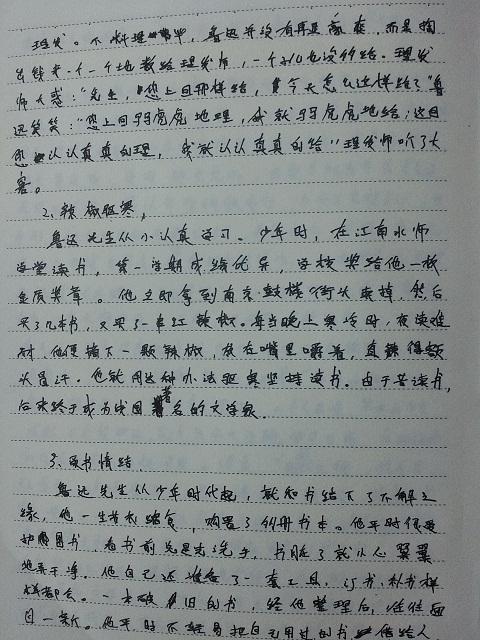 理发。不料理毕，鲁迅并没有再更高兴，而是掏
出钱来一个一个地数给理发师，一个子儿也没多给。理发
师大惑："先生，您上回那样给，今天怎么这样给？"鲁
迅笑笑："您上回马马虎虎地理，我就马马虎虎地给；这回
您认认真真的理，我就认认真真的给"理发师听了大
窘。
2、辣椒驱寒，
鲁迅先生从小认真学习。少年时，在江南水师
学堂读书，第一学期成绩优异，学校奖给他一枚
金质奖章。他立即拿到南京鼓楼街头卖掉，然后
买了几本书，又买了一串红辣椒。每当晚上寒冷时，夜读难
耐，他便摘下一颗辣椒，放在嘴里嚼着，直辣得额
头冒汗。他就用这种办法驱寒坚持读书。由于苦读书，
后来终于成为我国著名的文学家。
3、读书情结.
鲁迅先生从少年时代起，就和书结下了不解之
缘，他一生节衣缩食，购置了 册书本。他平时很爱
护图书，看书前总是先洗手，书脏了就小心翼翼
地弄干净。他自己还准备了一套工具，订书、补书样
样都会。一本破旧的书，经他整理后，往往面
目一新。他平时不轻易把自己用过的书 借给人